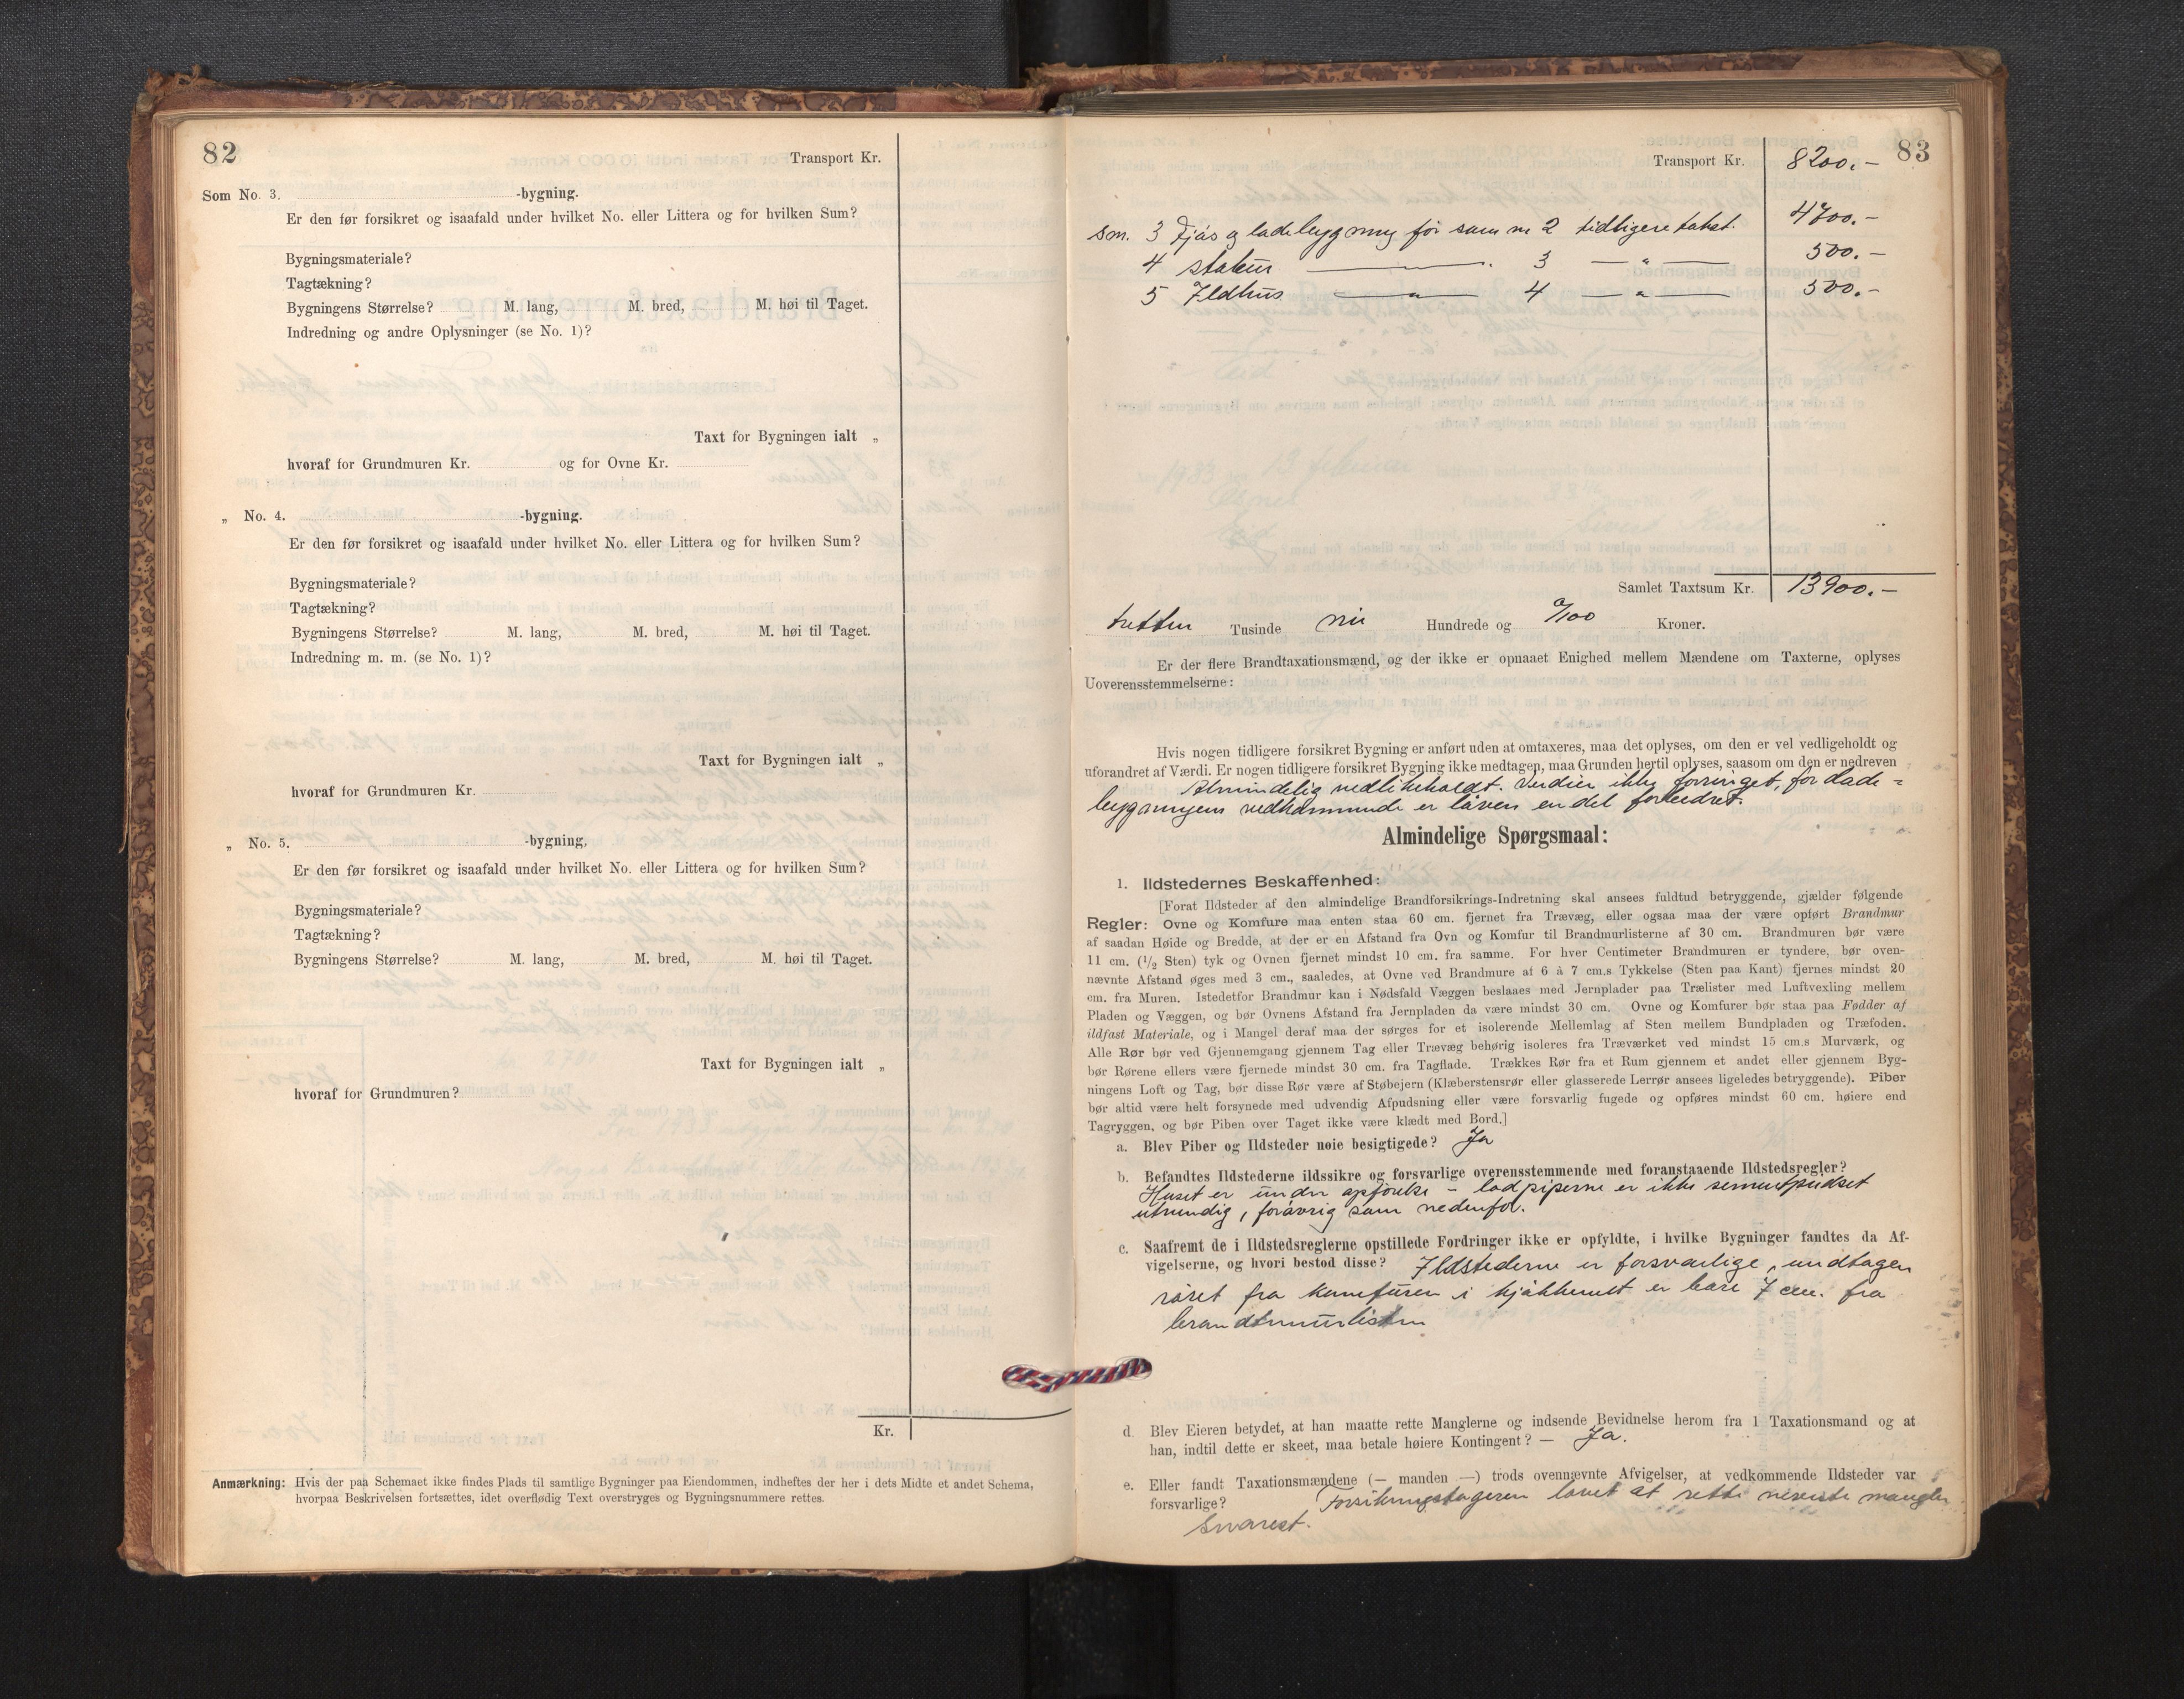 82
Transport Kr.
Som No. 3. -bygning.
Er den før forsikret og isaafald under hvilket No. eller Littera og for hvilken Sum?
Bygningsmateriale?
Tagtækning?
Bygningens Størrelse? M. lang, M. bred, M. høi til Taget.
Indredning og andre Oplysninger (se No. 1)?
Taxt for Bygningen ialt „
hvoraf for Grundmuren Kr. og for Ovne Kr.
„ No. 4. -bygning.
Er den før forsikret og isaafald under hvilket No. eller Littera og for hvilken Sum?
Bygningsmateriale?
Tagtækning?
Bygningens Størrelse? M. lang, M. bred, M. høi til Taget.
Indredning m. m. (se No. 1)?
Taxt for Bygningen ialt „
hvoraf for Grundmuren Kr.
„ No. 5. -bygning,
Er den før forsikret og isaafald under hvilket No. eller Littera og for hvilken Sum?
Bygningsmateriale?
Tagtækning?
Bygningens Størrelse? M. lang, M. bred, M. høi til Taget.
Taxt for Bygningen ialt „
hvoraf for Grundmuren?
Kr.
Anmærkning: Hvis der paa Schemaet ikke findes Plads til samtlige Bygninger paa Eiendommen, indheftes der her i dets Midte et andet Schema,
hvorpaa Beskrivelsen fortsættes, idet overflødig Text overstryges og Bygningsnummere rettes.
83
Transport Kr. 8200.-
3 Fjøs og ladebygning før som nr 2 tidligere takst. 4700.-
4 stabur 3 — " — 500.-
5 Ildhus — " — 4 — " — 500.-
Samlet Taxtsum Kr. 13900.-
tretten Tusinde ni Hundrede og 0/100 Kroner.
Er der flere Brandtaxationsmænd, og der ikke er opnaaet Enighed mellem Mændene om Taxterne, oplyses
Uoverensstemmelserne:
Hvis nogen tidligere forsikret Bygning er anført uden at omtaxeres, maa det oplyses, om den er vel vedligeholdt og
uforandret af Værdi. Er nogen tidligere forsikret Bygning ikke medtagen, maa Grunden hertil oplyses, saasom om den er nedreven
Almindelig vedlikeholdt. Verdien ikke forringet, for lade-
bygningens vedkommende er låven en del forbedret.
Almindelige Spørgsmaal:
1. Ildstedernes Beskaffenhed:
[Forat Ildsteder af den almindelige Brandforsikrings-Indretning skal ansees fuldtud betryggende, gjælder følgende
Regler: Ovne og Komfure maa enten staa 60 cm. fjernet fra Trævæg, eller ogsaa maa der være opført Brandmur
af saadan Høide og Bredde, at der er en Afstand fra Ovn og Komfur til Brandmurlisterne af 30 cm. Brandmuren bør være
11 cm. (1/2 Sten) tyk og Ovnen fjernet mindst 10 cm. fra samme. For hver Centimeter Brandmuren er tyndere, bør oven-
nævnte Afstand øges med 3 cm., saaledes, at Ovne ved Brandmure af 6 à 7 cm.s Tykkelse (Sten paa Kant) fjernes mindst 20
cm. fra Muren. Istedetfor Brandmur kan i Nødsfald Væggen beslaaes med Jernplader paa Trælister med Luftvexling mellem
Pladen og Væggen, og bør Ovnens Afstand fra Jernpladen da være mindst 30 cm. Ovne og Komfurer bør staa paa Fødder af
ildfast Materiale, og i Mangel deraf maa der sørges for et isolerende Mellemlag af Sten mellem Bundpladen og Træfoden.
Alle Rør bør ved Gjennemgang gjennem Tag eller Trævæg behørig isoleres fra Træværket ved mindst 15 cm.s Murværk, og
bør Rørene ellers være fjernede mindst 30 cm. fra Tagflade. Trækkes Rør fra et Rum gjennem et andet eller gjennem Byg-
ningens Loft og Tag, bør disse Rør være af Støbejern (Klæberstensrør eller glasserede Lerrør ansees ligeledes betryggende). Piber
bør altid være helt forsynede med udvendig Afpudsning eller være forsvarlig fugede og opføres mindst 60 cm. høiere end
Tagryggen, og bør Piben over Taget ikke være klædt med Bord.]
a. Blev Piber og Ildsteder nøie besigtigede? Ja
b. Befandtes Ildstederne ildssikre og forsvarlige overensstemmende med foranstaaende Ildstedsregler?
Huset er under opførelse – er ikke sementpudset
utvendig, forøvrig som nedenfor.
c. Saafremt de i Ildstedsreglerne opstillede Fordringer ikke er opfyldte, i hvilke Bygninger fandtes da Af-
vigelserne, og hvori bestod disse? Ildstederne er forsvarlige, undtagen
røret fra komfuren i kjøkkenet er bare 7 cm. fra
brandmurlisten
d. Blev Eieren betydet, at han maatte rette Manglerne og indsende Bevidnelse herom fra 1 Taxationsmand og at
han, indtil dette er skeet, maa betale høiere Kontingent? — Ja.
e. Eller fandt Taxationsmændene (— manden —) trods ovennævnte Afvigelser, at vedkommende Ildsteder var
forsvarlige? Forsikringstageren lovet at rette nevnte mangler
snarest.